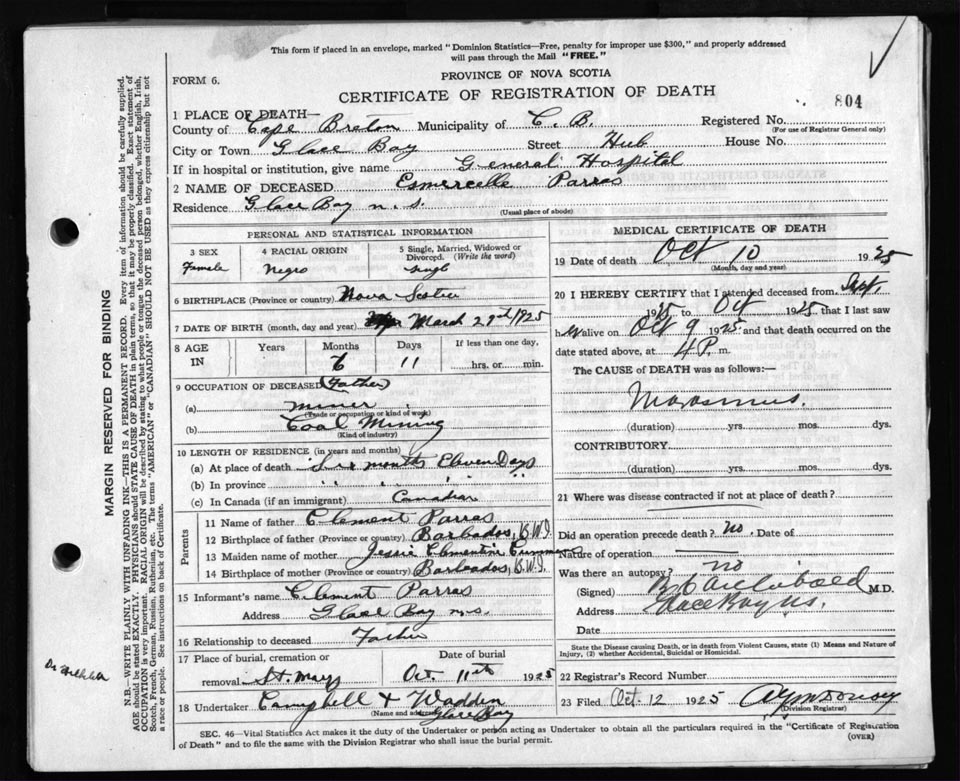 This form if placed in an envelope, marked "Dominion Statistics—Free, penalty for improper use $300," and properly addressed
will pass through the Mail "FREE."
FORM 6.
PROVINCE OF NOVA SCOTIA
CERTIFICATE OF REGISTRATION OF DEATH
804
1 PLACE OF DEATH—
County of Cape Breton Municipality of C. B. Registered No.
(For use of Registrar General only)
City or Town Glace Bay Street Hub House No.
If in hospital or institution, give name General Hospital
2 NAME OF DECEASED Esmercelle Parras
Residence Glace Bay n.s.
(Usual place of abode)
PERSONAL AND STATISTICAL INFORMATION
3 SEX 4 RACIAL ORIGIN 5 Single, Married, Widowed or
Divorced. (Write the word)
Famele Negro Single
6 BIRTHPLACE (Province or country) Nova Scotia
7 DATE OF BIRTH (month, day and year) March 29th 1925
8 AGE IN Years Months Days If less than one day,
6 11 hrs. or min.
9 OCCUPATION OF DECEASED (Father)
(a) Miner
(Trade or occupation or kind of work)
(b) Coal Mining
(Kind of industry)
10 LENGTH OF RESIDENCE (in years and months)
(a) At place of death Six months Eleven Days
(b) In province " " " "
(c) In Canada (if an immigrant) Canadian
Parents
11 Name of father Clement Parras
12 Birthplace of father (Province or country) Barbados, B.W.I.
13 Maiden name of mother Jessie Clementine
14 Birthplace of mother (Province or country) Barbados, B.W.I.
15 Informant's name Clement Parras
Address Glace Bay n.s.
16 Relationship to deceased Father
17 Place of burial, cremation or Date of burial
removal St. Marys Oct. 11th 1925
18 Undertaker Campbell & Wadden
(Name and address) Glace Bay
MEDICAL CERTIFICATE OF DEATH
19 Date of death Oct 10 1925
(Month, day and year)
20 I HEREBY CERTIFY that I attended deceased from Sept
1925 to Oct 1925 that I last saw
her alive on Oct 9 1925 and that death occurred on the
date stated above, at 4 P. m.
The CAUSE of DEATH was as follows:—
Marasmus.
(duration) yrs. mos. dys.
CONTRIBUTORY.
(duration) yrs. mos. dys.
21 Where was disease contracted if not at place of death?
Did an operation precede death? No. Date of
Nature of operation
Was there an autopsy? no
(Signed) Archibald M.D.
Address Glace Bay NS.
Date
State the Disease causing Death, or in death from Violent Causes, state (1) Means and Nature of
Injury, (2) whether Accidental, Suicidal or Homicidal.
22 Registrar's Record Number
23 Filed Oct. 12 1925
(Division Registrar)
SEC. 46—Vital Statistics Act makes it the duty of the Undertaker or person acting as Undertaker to obtain all the particulars required in the "Certificate of Registration
of Death" and to file the same with the Division Registrar who shall issue the burial permit.
(OVER)
MARGIN RESERVED FOR BINDING
N.B.—WRITE PLAINLY WITH UNFADING INK—THIS IS A PERMANENT RECORD. Every item of information should be carefully supplied.
AGE should be stated EXACTLY. PHYSICIANS should STATE CAUSE OF DEATH in plain terms, so that it may be properly classified. Exact statement of
OCCUPATION is very important. RACIAL ORIGIN will be described by stating to what people or tongue the deceased person belonged, whether English, Irish,
Scotch, French, German, Russian, Ruthenian, etc. The terms "AMERICAN" or "CANADIAN" SHOULD NOT BE USED as they express citizenship but not
a race or people. See instructions on back of Certificate.